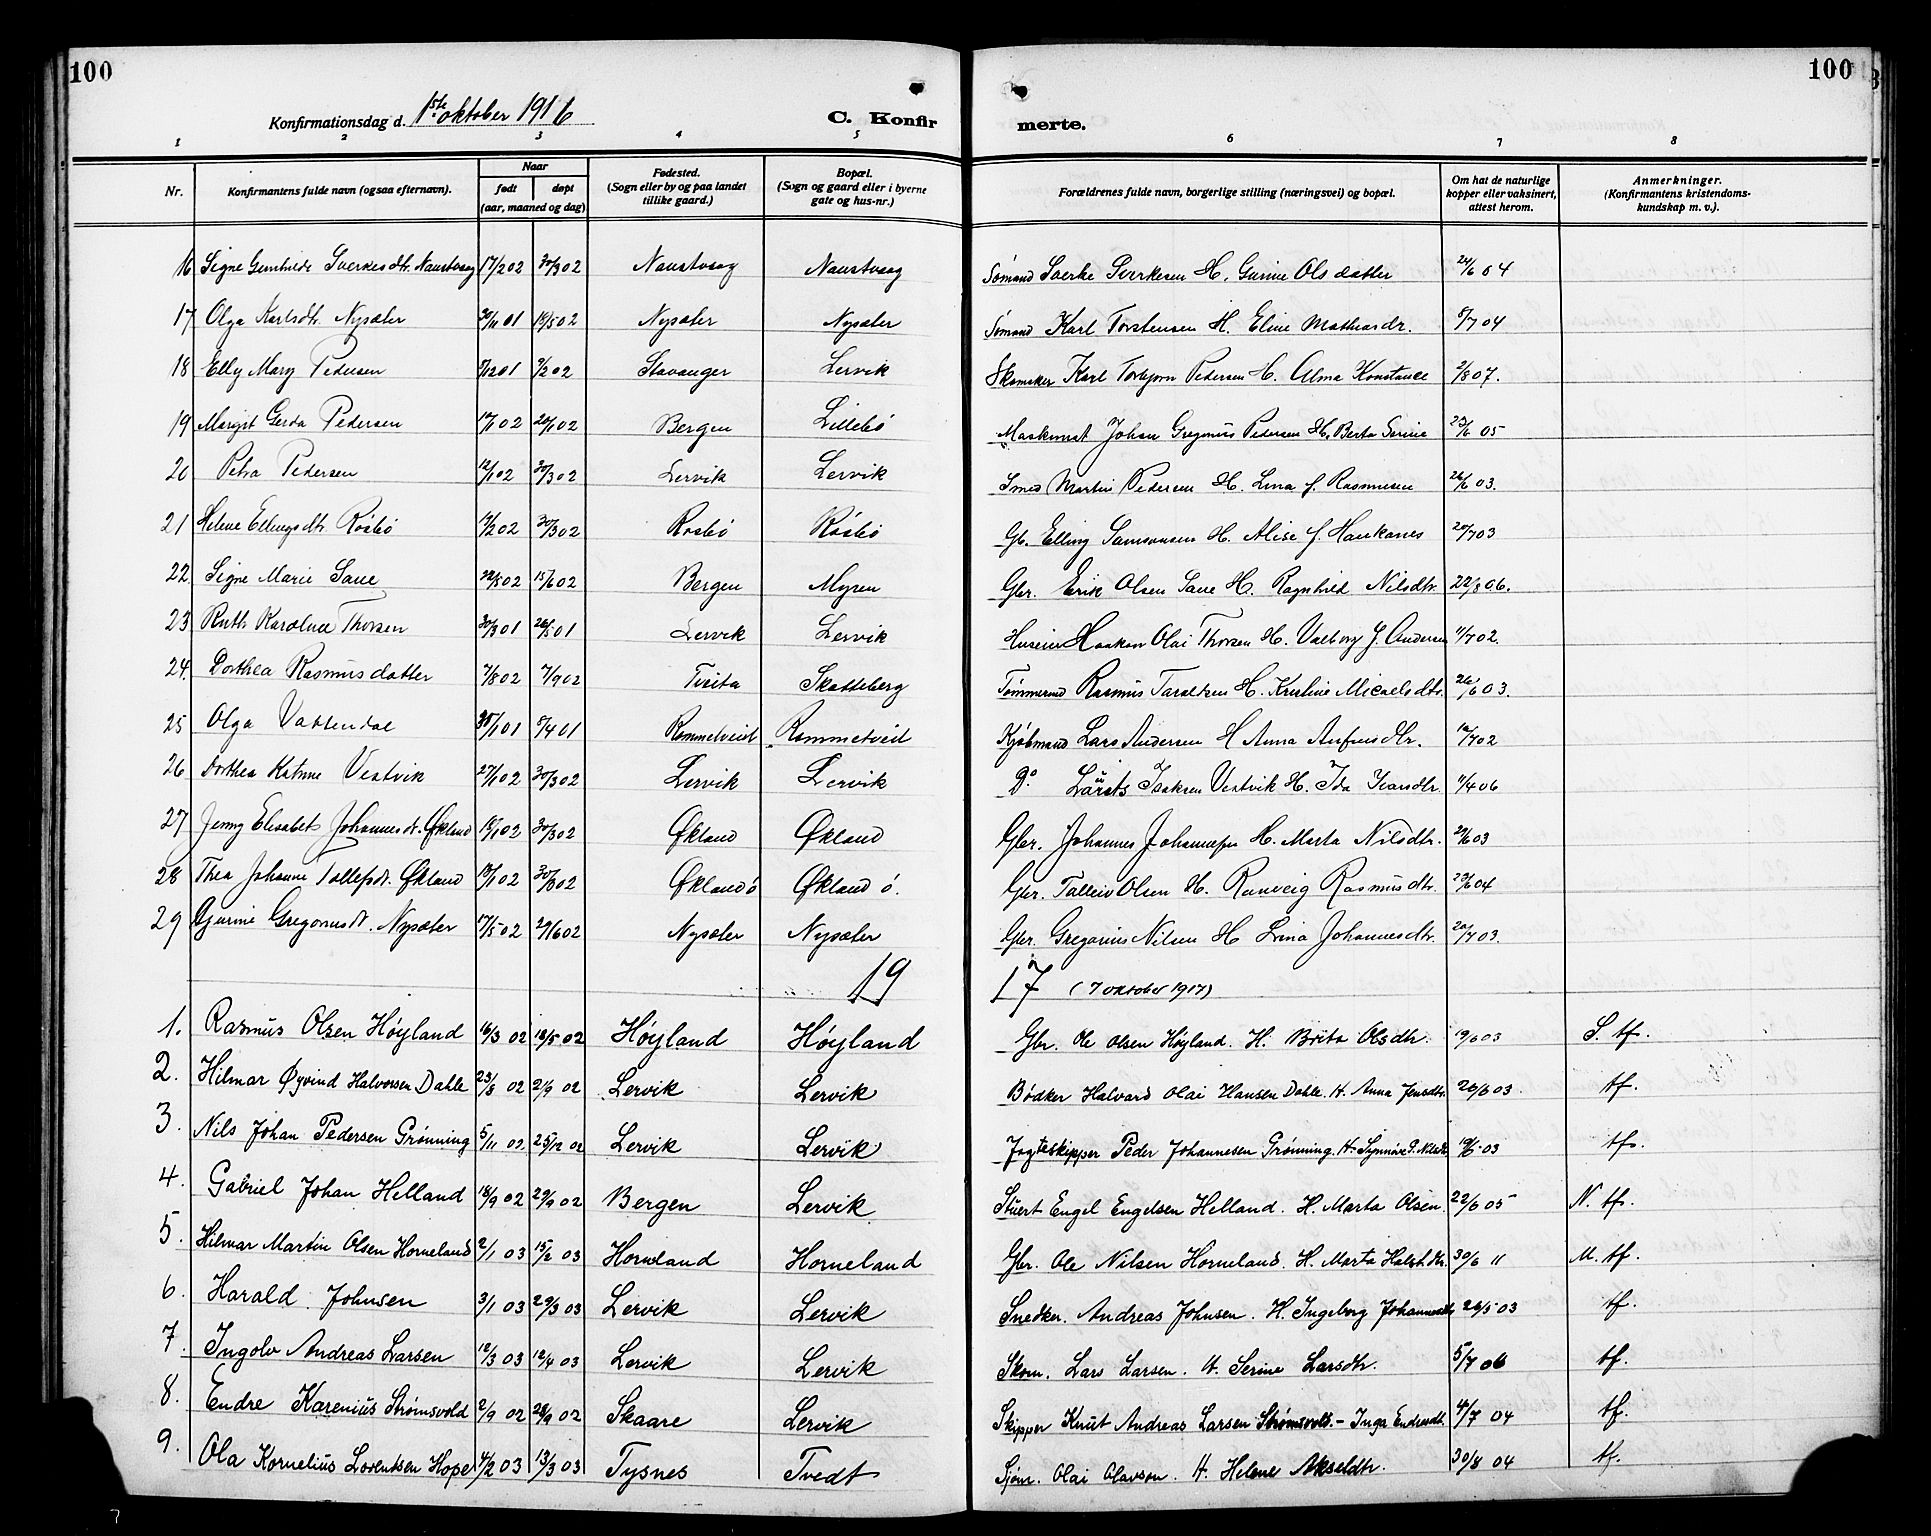 100
100
Konfirmationsdag d. 1ste oktober 1916
C. Konfir
merte.
1 2 3 4 5 6 7 8
Nr.
Konfirmantens fulde navn (ogsaa efternavn).
Naar
født
døpt
(aar, maaned og dag)
Fødested.
(Sogn eller by og paa landet
tillike gaard.)
Bopæl.
(Sogn og gaard eller i byerne
gate og hus-nr.)
Forældrenes fulde navn, borgerlige stilling (næringsvei) og bopæl.
Om hat de naturlige
kopper eller vaksinert,
attest herom.
Anmerkninger.
(Konfirmantens kristendoms-
kundskap m. v.).
16 Signe Gunhilde Sverkesdtr. Naustvaag 17/2 02 30/3 02 Naustvaag Naustvaag Sømand Sverke Sverkesen H. Gurine Olsdatter 24/6 04
17 Olga Karlsdtr. Nysæter 30/11 01 19/5 02 Nysæter Nysæter Sømand Karl Torstensen H. Eline Mathiasdr. 8/7 04
18 Elly Mary Pedersen 01 9/2 02 Stavanger Lervik Skomaker Karl Torbjørn Pedersen H. Alma Konstance 2/8 07.
19 Margit Gerda Pedersen 02 02 Bergen Lillebö Maskinist Johan Gregorius Pedersen H. Berta Serine 23/6 05
20 Petra Pedersen 12/1 02 30/3 02 Lervik Lervik Smed Martin Pedersen H. Lina f. Rasmusen 26/6 03.
21 Helene Ellingsdtr. Rösbö 02 30/3 02 Rosbö Rösbö Gb. Elling Samsonsen H. Alise f. Haukanes 20/7 03
22 Signe Marie Saue 02 15/6 02 Bergen Myren Gbr. Erik Olsen Saue H. Ragnhild Nilsdtr. 22/8 06.
23 Ruth Karoline Thorsen 30/3 01 26/5 01 Lervik Lervik Huseier Haakon Olai Thorsen H. Valborg J. Andersen 11/7 02.
24. Dorthea Rasmusdatter 7/8 02 7/9 02 Tveita Skatteberg Tømmermd Rasmus Taraldsen H. Kristine Micaelsdtr. 26/6 03.
25 Olga Vattendal 01 8/4 01 Rommetveit Rommetveit Kjøbmand Lars Andersen H Anna Anfinsdtr. 02
26 Dorthea Katrine Vestvik 27/1 02 30/3 02 Lervik Lervik Do Isaksen Vestvik H. Ida Ivarsdtr. 11/4 06
27 Jenny Elisabet Johannesdt. Økland 02 30/3 02 Økland Økland Gbr. Johannes Johannessen H. Marta Nilsdtr. 03
28 Thea Johanne Tollefsdt. Økland 02 30/3 02 Økland ö Økland ö. Gbr. Talleiv Olsen H. Ranveig Rasmusdtr. 23/6 04
29 Gurine Gregoriusdt. Nysæter 17/5 02 29/6 02 Nysæter Nysæter Gbr. Gregorius Nilsen H Lina Johannesdtr. 20/7 03.
19 17 (7 oktober 1917)
1. Rasmus Olsen Höyland 16/3 02 18/5 02 Höyland Höyland Gbr. Ole Olsen Höyland. H. Brita Olsdtr. 19/6 03 S. tf.
2. Hilmar Øyvind Halvorsen Dahle 23/8 02 21/9 02 Lervik Lervik Bødker Halvard Olai Hansen Dahle. H. Anna Jensdtr. 26/6 03. tf.
3. Nils Johan Pedersen Grönning 5/11 02. 25/12 02 Lervik Lervik Jagteskipper Peder Johannesen Grönning. H. Synnöve P. Nilsdtr 03 tf.
4. Gabriel Johan Helland 18/9 02 29/9 02 Bergen Lervik Stuert Engel Engelsen Helland. H. Marta Olsen. 22/6 05 N. tf.
5. Hilmar Martin Olsen Horneland 2/1 03 15/2 03 Horneland Horneland Gbr. Ole Nilsen Horneland. H. Marta Halst.dtr. 30/6 11 M. tf.
6. Harald Johnsen 3/1 03 29/3 03 Lervik Lervik Snedker. Andreas Johnsen. H. Ingeborg Johannesdtr 26/5 03 tf.
7. Ingolv Andreas Larsen 12/3 03 12/4 03 Lervik Lervik Skom. Lars Larsen. H. Serine Larsdtr. 5/7 06 tf.
8. Endre Karenius Strömsvold 2/9 02 28/9 02 Skaare Lervik Skipper Knut Andreas Larsen Strömsvold - Inga Endresdt. 4/7 04 tf.
9. Ola Kornelius Lorentsen Hope 4/2 03 13/3 03 Tysnes Tvedt Sjöm. Olai Olavson. H. Helene Akseldtr. 30/8 04 tf.